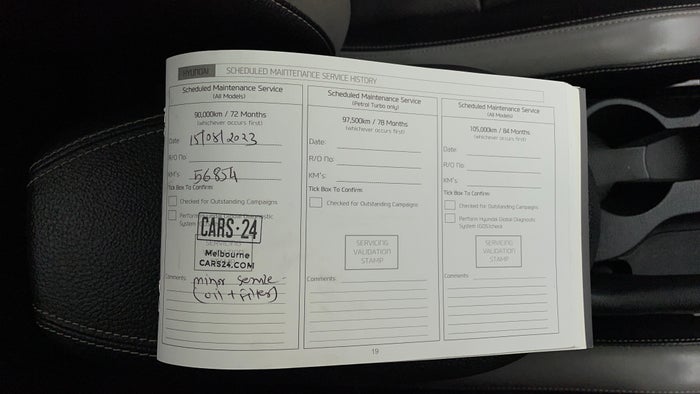 HYUNDAI SCHEDULED MAINTENANCE SERVICE HISTORY
Scheduled Maintenance Service
(All Models)
90,000km / 72 Months
(whichever occurs first)
Date: 15/05/2023
R/O No:
KM's: 56854
Tick Box To Confirm:
Checked for Outstanding Campaigns
Perform Hyundai Global Diagnostic
System
CARS·24
Melbourne
CARS24.COM
Comments: minor service
(oil + Filter)
Scheduled Maintenance Service
(Petrol Turbo only)
97,500km / 78 Months
(whichever occurs first)
Date:
R/O No:
KM's:
Tick Box To Confirm:
Checked for Outstanding Campaigns
SERVICING
VALIDATION
STAMP
Comments:
Scheduled Maintenance Service
(All Models)
105,000km / 84 Months
(whichever occurs first)
Date:
R/O No:
KM's:
Tick Box To Confirm:
Checked for Outstanding Campaigns
Perform Hyundai Global Diagnostic
System (GDS)check
SERVICING
VALIDATION
STAMP
Comments:
19